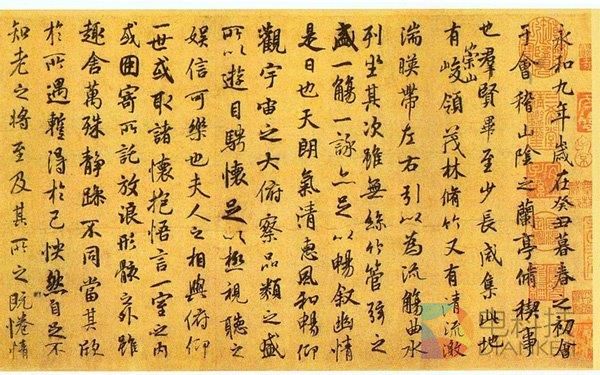 永和九年歲在癸丑暮春之初會
于會稽山陰之蘭亭脩稧事
也羣賢畢至少長咸集此地
有崇山峻領茂林脩竹又有清流激
湍暎帶左右引以為流觴曲水
列坐其次雖無絲竹管弦之
盛一觴一詠亦足以暢叙幽情
是日也天朗氣清惠風和暢仰
觀宇宙之大俯察品類之盛
所以遊目騁懷足以極視聽之
娛信可樂也夫人之相與俯仰
一世或取諸懷抱悟言一室之內
或因寄所託放浪形骸之外雖
趣舍萬殊靜躁不同當其欣
於所遇蹔得於己怏然自足不
知老之將至及其所之既惓情
电科技